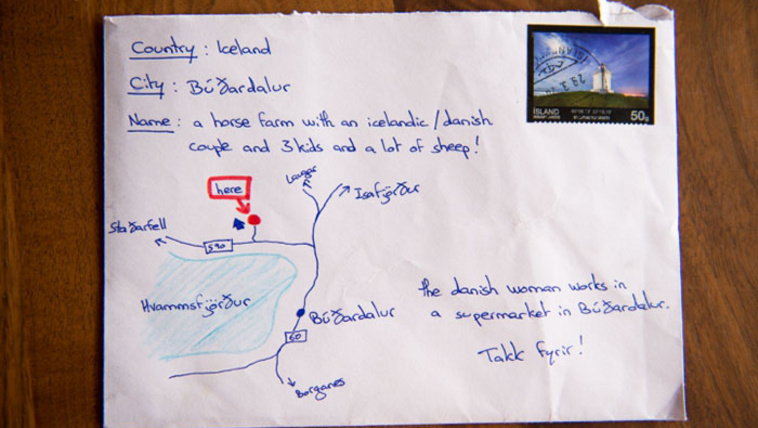 Country : Iceland
City : Búðardalur
Name : a horse farm with an icelandic / danish
couple and 3 kids and a lot of sheep !
ÍSLAND
50g
here
Laugar
Isafjörður
Staðarfell
590
Hvammsfjörður
Búðardalur
60
Borganes
the danish woman works in
a supermarket in Búðardalur.
Takk fyrir !